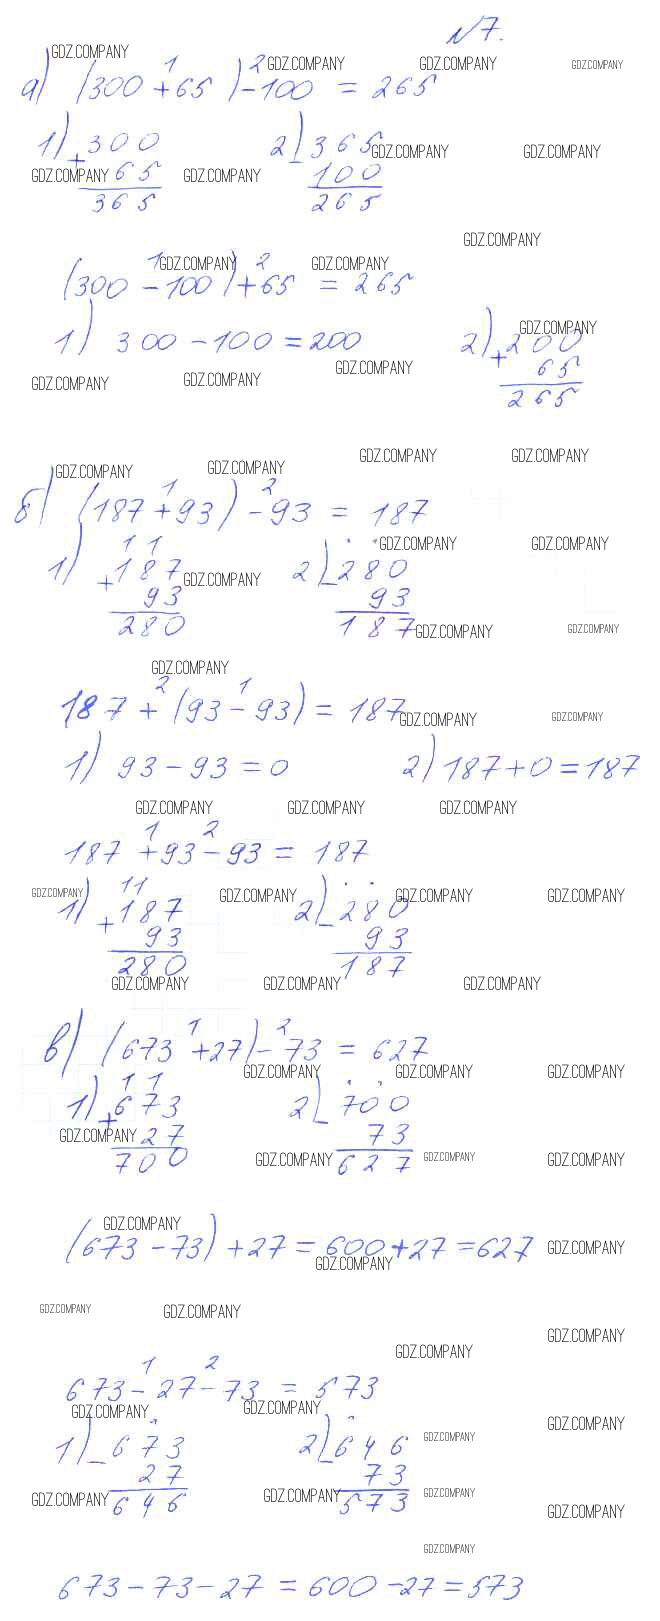 №7.
а) (300 + 65) - 100 = 265
1) 300 + 65 365
2) 365 - 100 265
(300 - 100) + 65 = 265
1) 300 - 100 = 200
2) 200 + 65 265
б) (187 + 93) - 93 = 187
1) 187 + 93 280
2) 280 - 93 187
187 + (93 - 93) = 187
1) 93 - 93 = 0
2) 187 + 0 = 187
187 + 93 - 93 = 187
1) 187 + 93 280
2) 280 - 93 187
в) (673 + 27) - 73 = 627
1) 673 + 27 700
2) 700 - 73 627
(673 - 73) + 27 = 600 + 27 = 627
673 - 27 - 73 = 573
1) 673 - 27 646
2) 646 - 73 573
673 - 73 - 27 = 600 - 27 = 573
GDZ.COMPANY